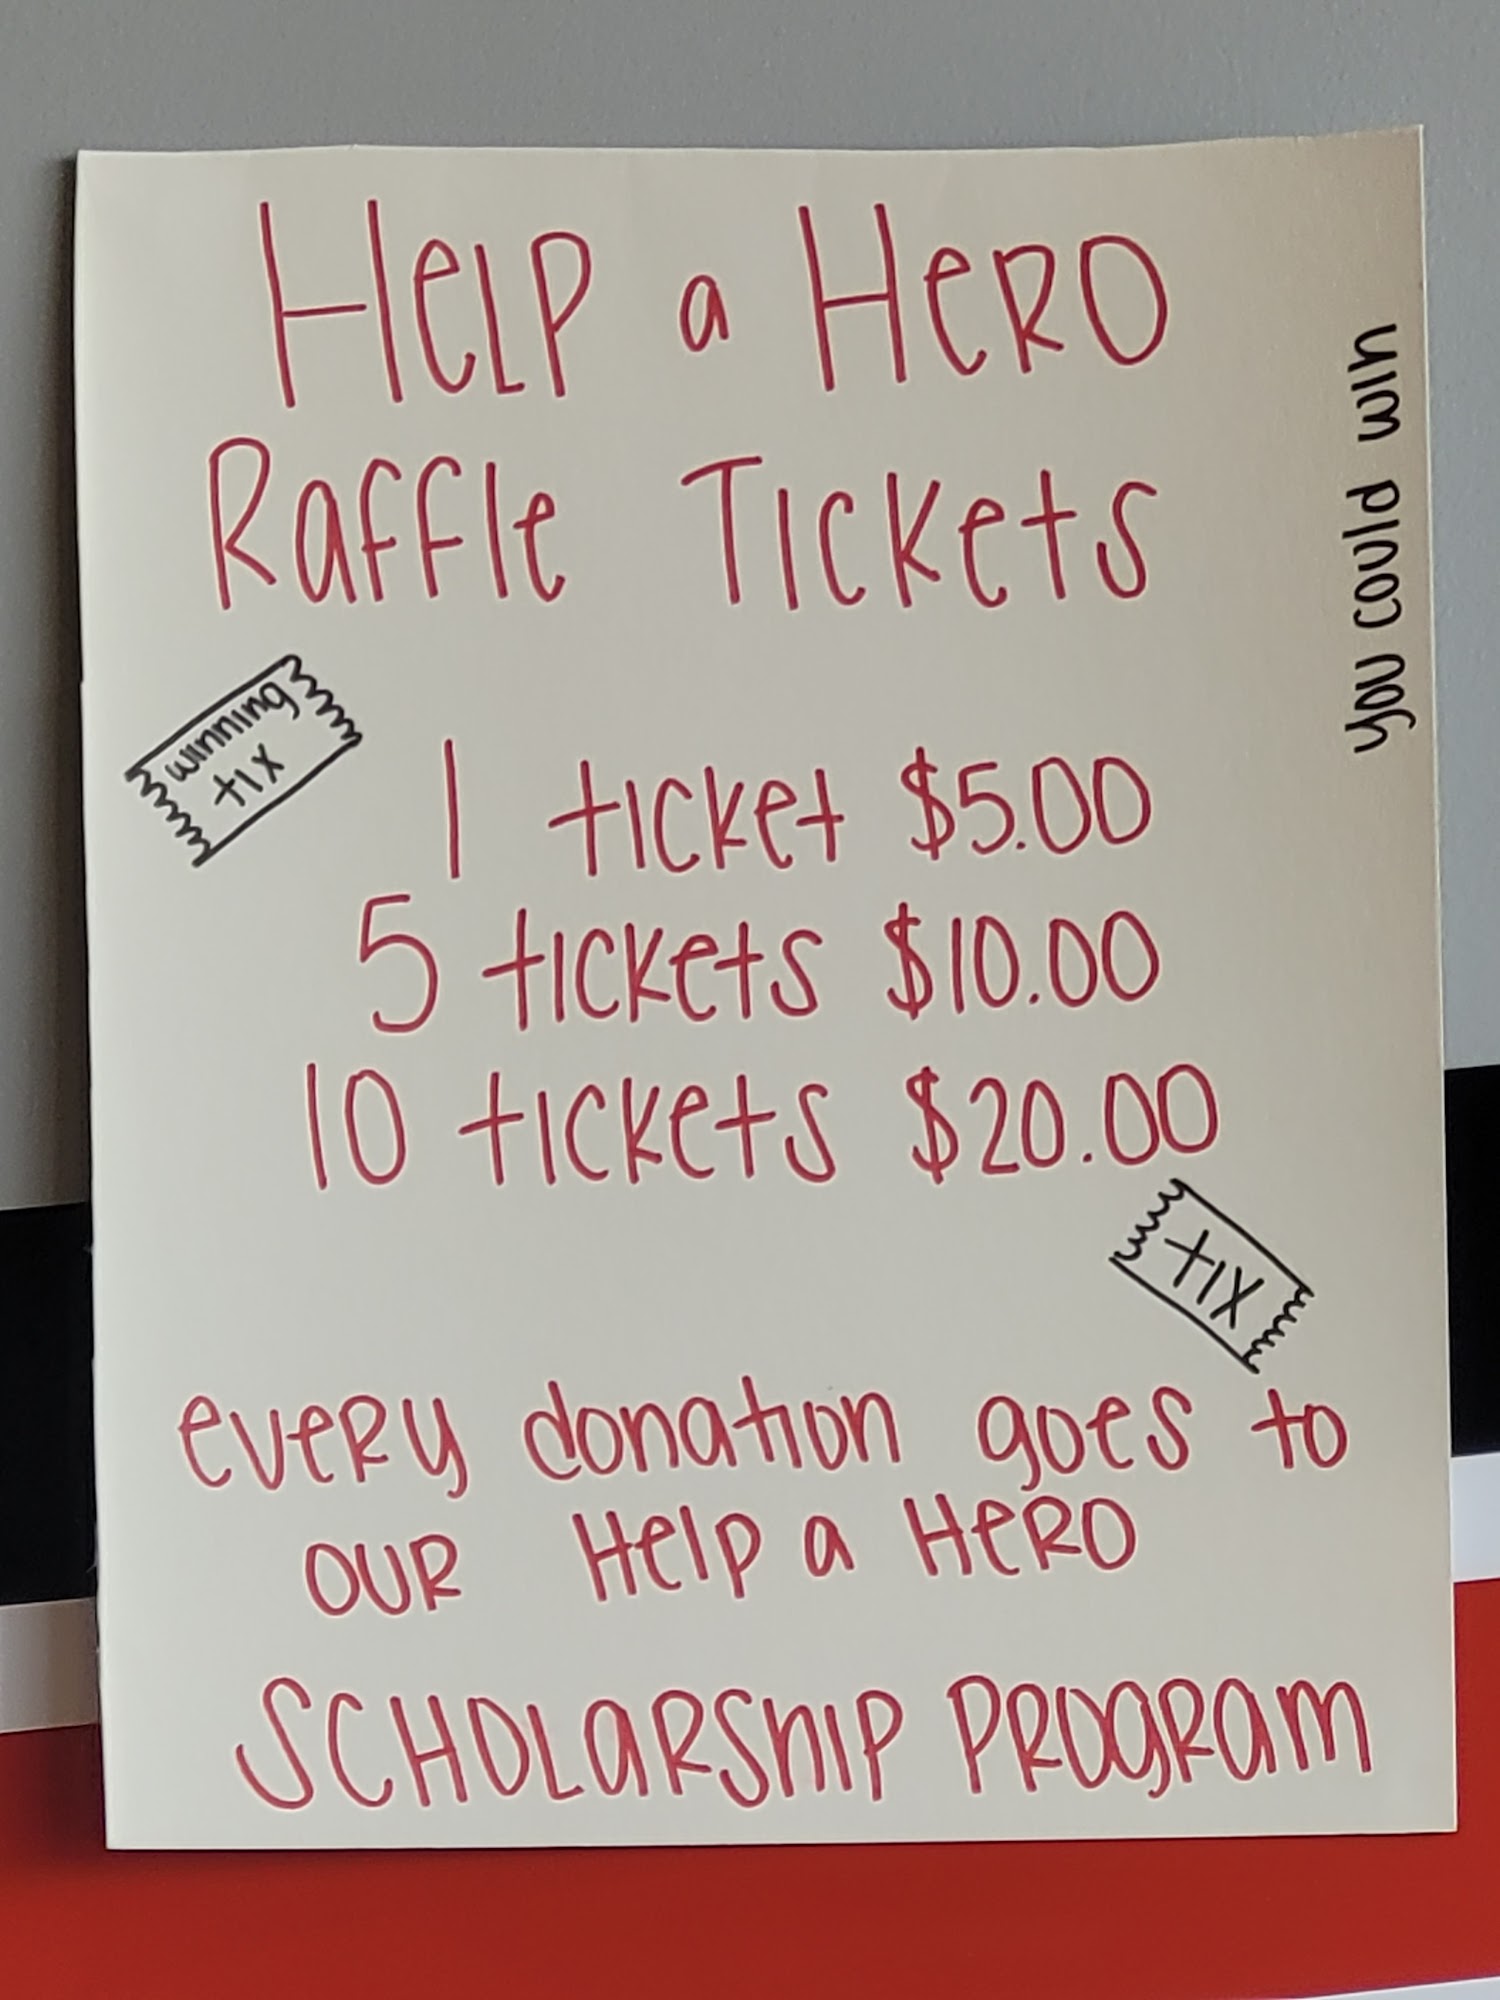 HeLP a HeRO
Raffle Tickets
you could win
winning
tix
1 ticket $5.00
5 tickets $10.00
10 tickets $20.00
tix
every donation goes to
our Help a Hero
Scholarship Program